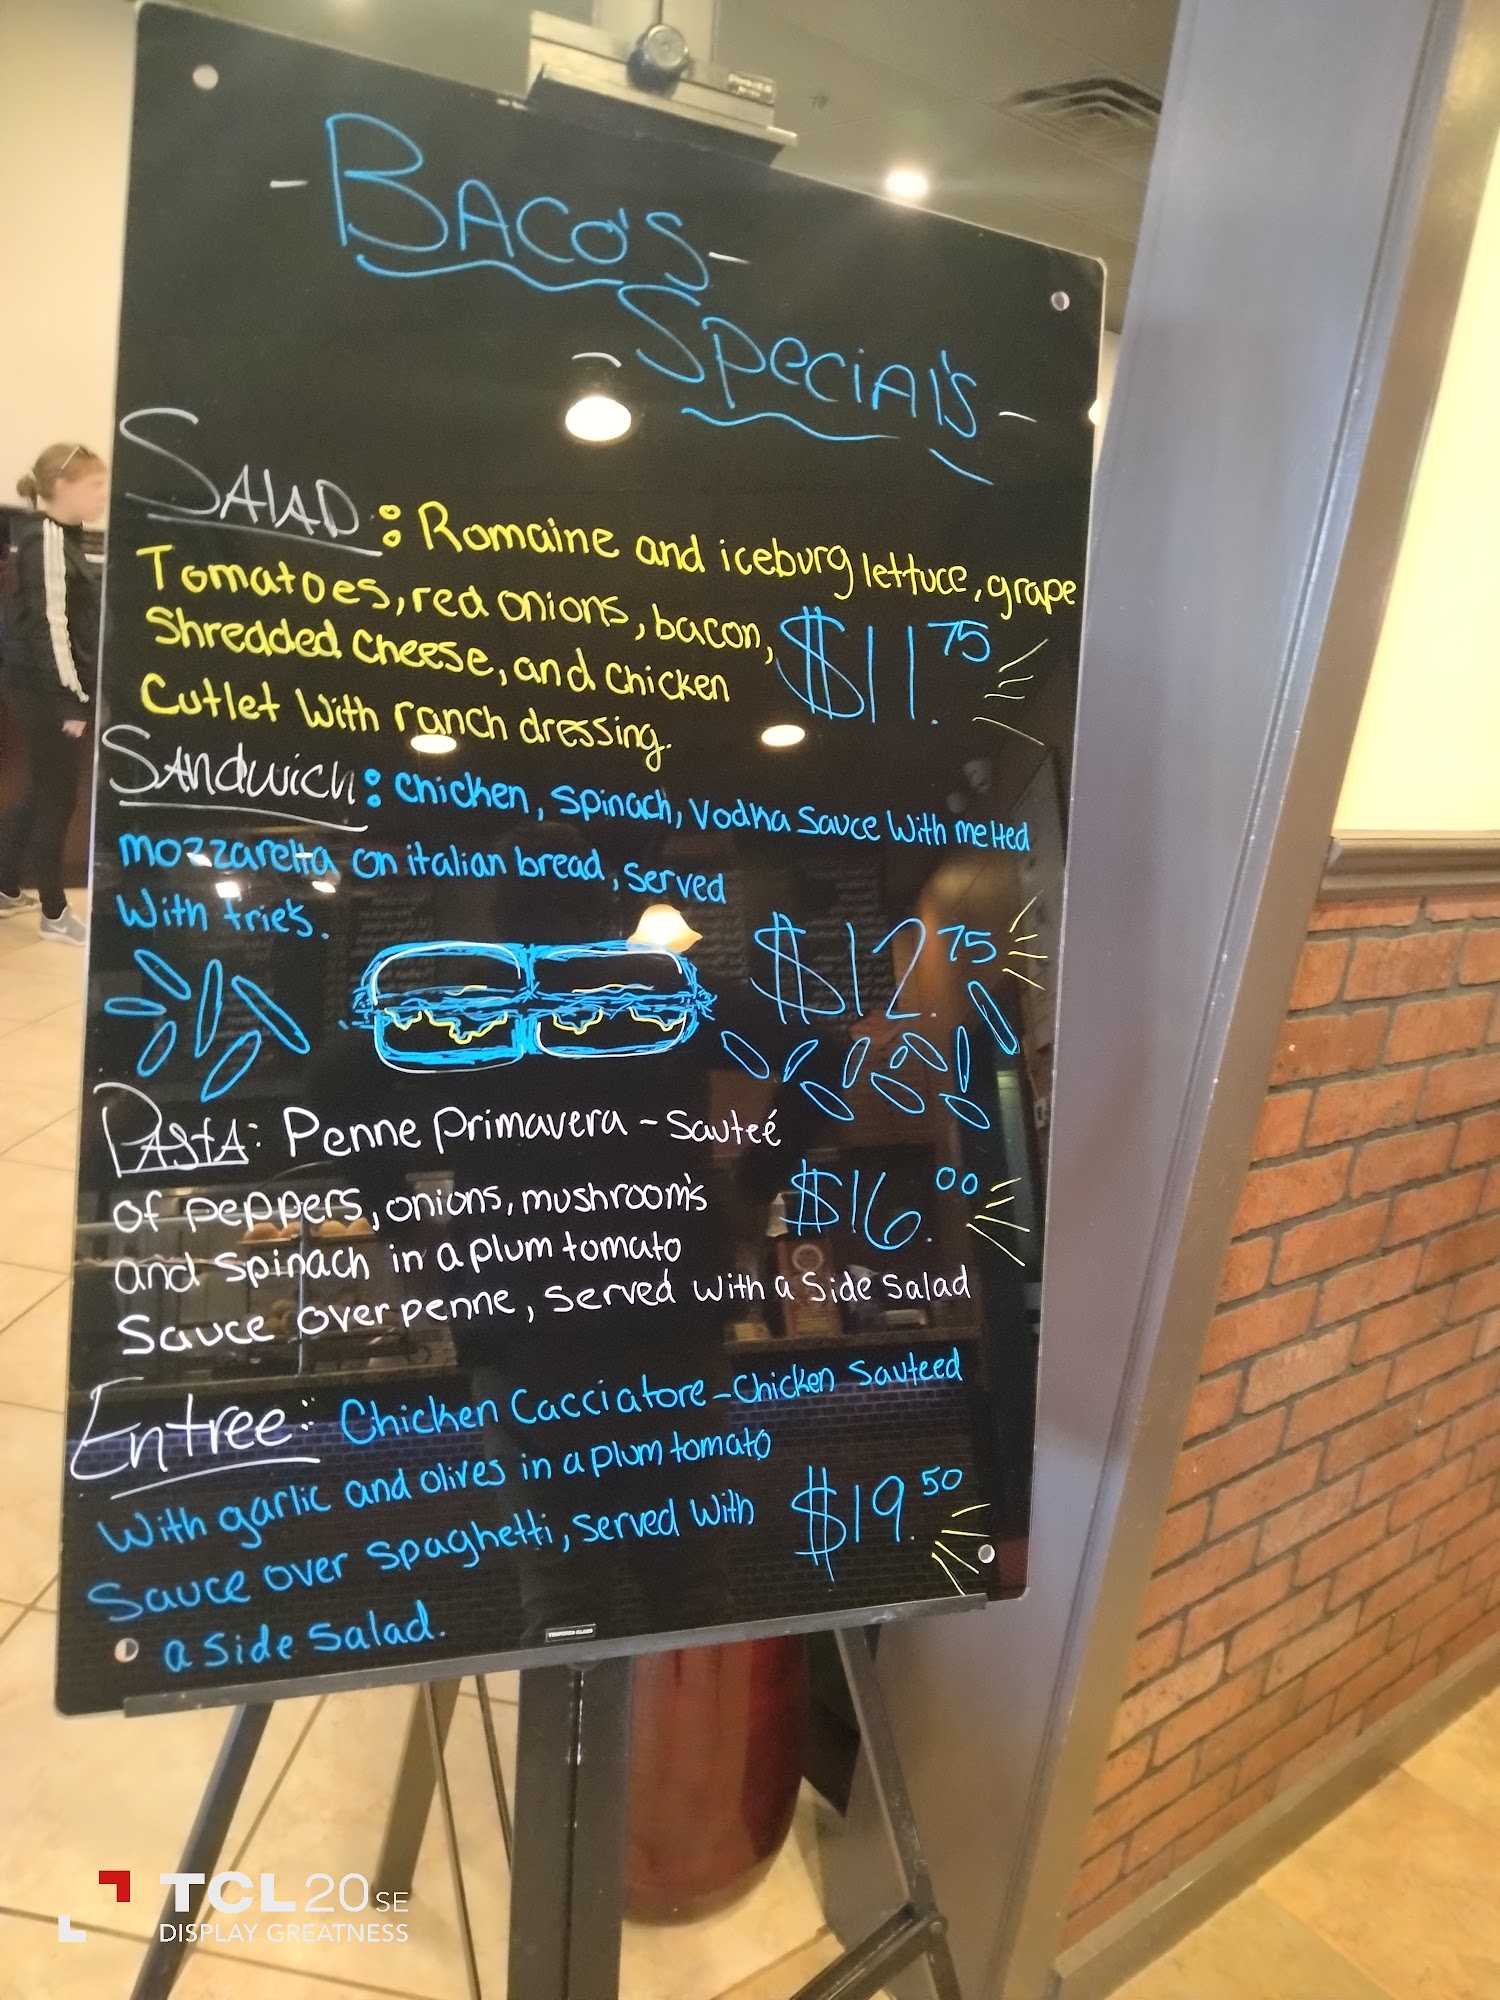 - BACO'S -
- SPECIAl'S -
SAlAD: Romaine and iceburg lettuce, grape
Tomatoes, red onions, bacon,
Shredded Cheese, and Chicken
Cutlet With ranch dressing.
$11.75
SANdwich: chicken, spinach, vodka Sauce With melted
mozzarella on italian bread, served
With frie's.
$12.75
PAStA: Penne Primavera - Sauteé
of peppers, onions, mushroom's
and spinach in a plum tomato
Sauce over penne, served with a side salad
$16.00
Entree: Chicken Cacciatore - Chicken Sauteed
With garlic and olives in a plum tomato
Sauce over spaghetti, served with
a side salad.
$19.50
TEMPERED GLASS
TCL 20 SE
DISPLAY GREATNESS